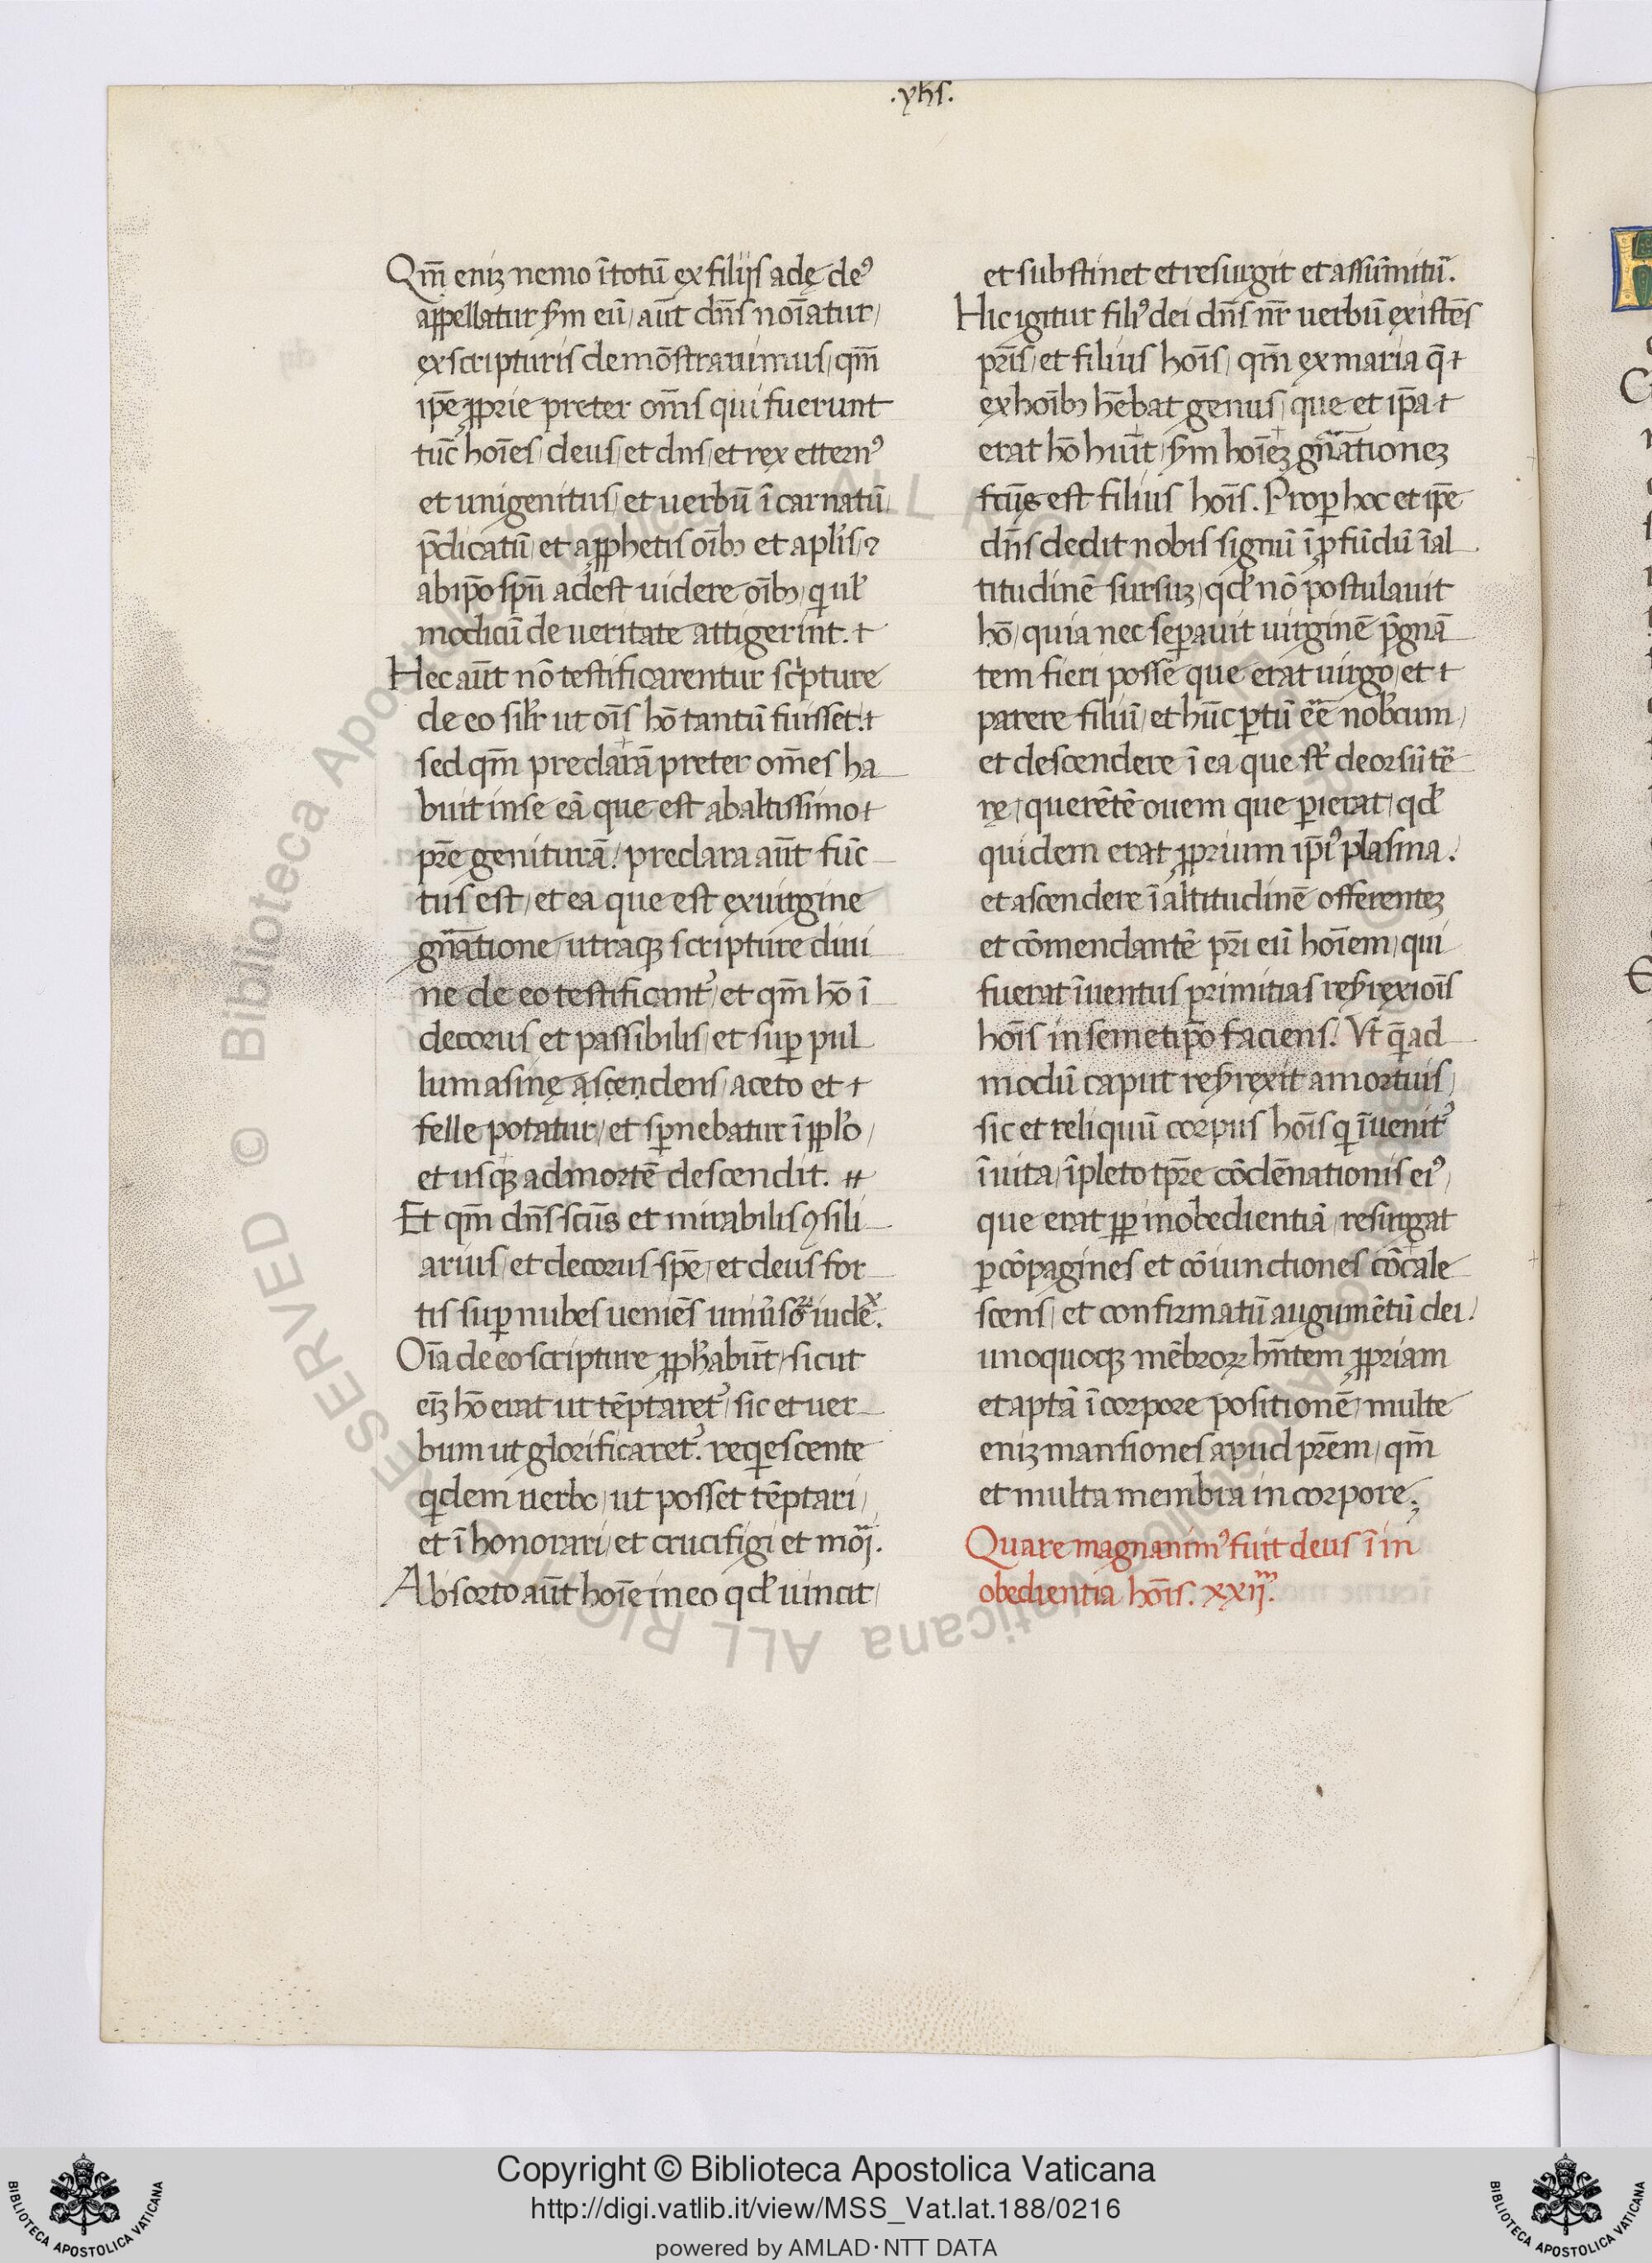 .yhs.
Qm̅ eniʒ nemo ı̅ totu̅ ex filijs adę deꝰ
appellatur ẜm eu̅, au̅t dn̅s noı̅atur,
ex scripturis demo̅strauimus, qm̅
ip̅e ꝓprie preter om̅s qui fuerunt
tu̅c hoı̅es, deus, et dns, et rex etternꝰ
et unigenitus, et uerbu̅ ı̅carnatu̅,
p̅dicatu̅, et a ꝓphetis oı̅bꝫ et apl̅is, ⁊
ab ip̅o spu̅ adest uidere oı̅bꝫ, qi ul̅
modicu̅ de ueritate attigerint. +
Hec au̅t no̅ testificarentur sc̍pture
de eo sil̅r ut oı̅s ho̅ tantu̅ fuisset. +
sed qm̅ preclara̅ preter om̅es ha
buit in se ea̅ que est ab altissimo +
pr̅e genitura̅: preclara au̅t fu̅c
tus est, et ea que est ex uirgine
gn̅atione, utraqꝫ scripture diui
ne de eo testificant᷑, et qm̅ ho̅ ı̅
decorus et passibilis, et suꝑ pul
lum asinę ascendens, aceto et +
felle potatur, et sꝑnebatur ı̅ ppl̅o,
et usqꝫ ad morte̅ descendit. #
Et qm̅ dn̅s sc̅us et mirabilis ꝯsili
arius, et decorus spe̅, et deus for
tis suꝑ nubes uenie̅s uniu̅soꝝ iudex.
Oı̅a de eo scripture ꝓph̅abu̅t, sicut
eı̅ʒ ho̅ erat ut te̅ptaret᷑, sic et uer
bum ut glorificaret᷑. reqiescente
qidem uerbo, ut posset te̅ptari,
et ı̅honorari, et crucifigi et mo̅ri.
Absorto au̅t hoı̅e in eo qd̅ uincit,
et substinet et resurgit et assu̅mitu᷑.
Hic igitur filiꝰ dei dn̅s nr̅ uerbu̅ existe̅s
pr̅is, et filius hoı̅s, qm̅ ex maria q̅ +
ex hoı̅bꝫ he̅bat genus, que et ip̅a +
erat ho̅ hu̅it, ẜm hoı̅eʒ gn̅ationeʒ
fc̅us est filius hoı̅s. Propꝑ hoc et ip̅e
dn̅s dedit nobis signu̅ ı̅ ꝓfu̅du̅ ı̅ al
titudine̅ sursuʒ, qd̅ no̅ postulauit
ho̅, quia nec seꝑauit uirgine̅ p̅gna̅
tem fieri posse que erat uirgo, et +
parere filiu̅, et hu̅c ꝑtu̅ ee̅ nob̅cum,
et descendere ı̅ ea que st̅ deorsu̅ te̅
rę, quere̅te̅ ouem que ꝑierat, qd̅
quidem erat ꝓprium ip̅iꝰ plasma.
et ascendere ı̅ altitudine̅ offerenteʒ
et co̅mendante̅ pr̅i eu̅ hoı̅em, qui
fuerat ı̅uentus primitias resr̅rexioı̅s
hoı̅s in semetip̅o faciens. Vt q̅ad
modu̅ caput resr̅rexit a mortuis,
sic et reliquu̅ corpus hoı̅s qi ı̅uenit᷑
ı̅ uita, ı̅pleto tp̅re co̅de̅nationis eiꝰ,
que erat ꝓp inobedientia̅, resurgat
ꝑ co̅pagines et co̅iunctiones co̅cale
scens, et confirmatu̅ augume̅tu̅ dei.
unoquoqꝫ me̅broꝝ hn̅tem ꝓpriam
et apta̅ ı̅ corpore positione̅, multe
eniʒ mansiones apud pr̅em, qm̅
et multa membra in corpore;
Quare magnanimꝰ fuit deus ı̅ in
obedientia hoı̅s. xxijm.
Copyright © Biblioteca Apostolica Vaticana
http://digi.vatlib.it/view/MSS_Vat.lat.188/0216
powered by AMLAD·NTT DATA